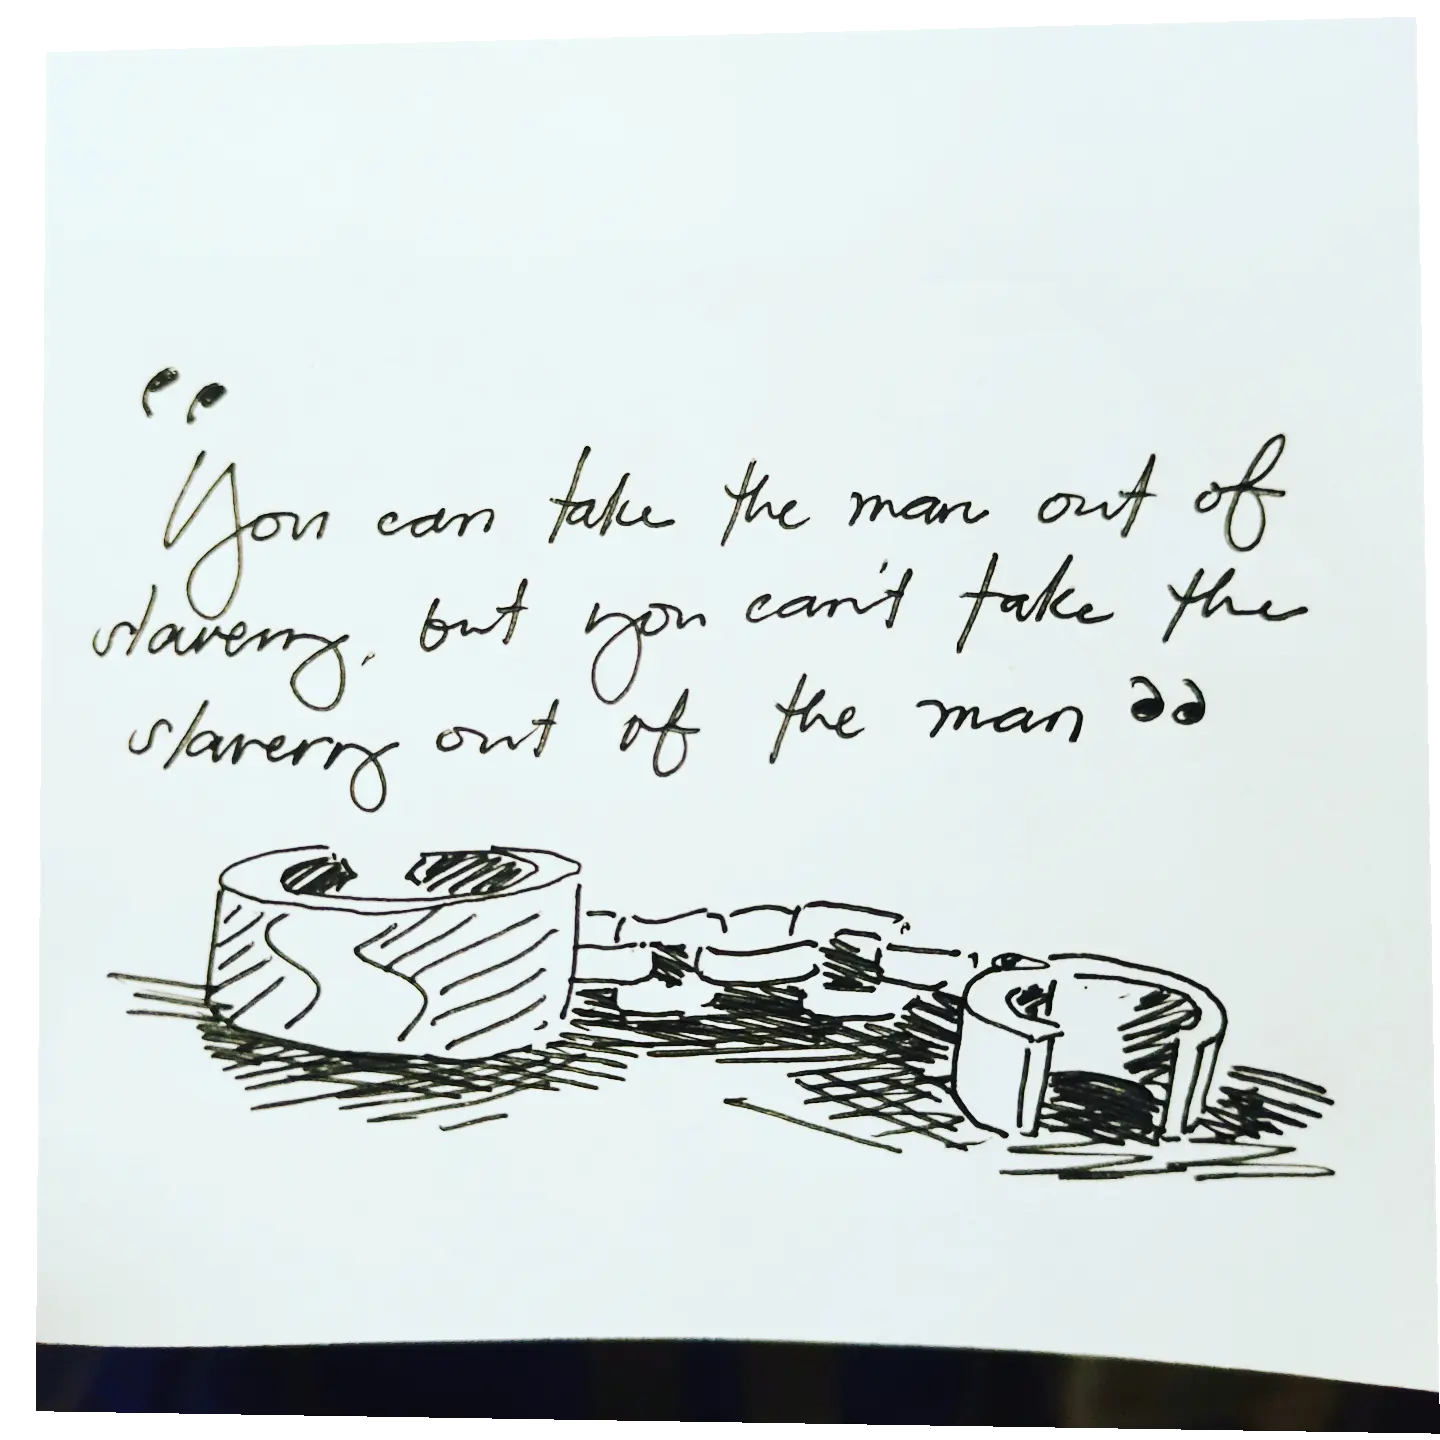 "You can take the man out of
slavery, but you can't take the
slavery out of the man"